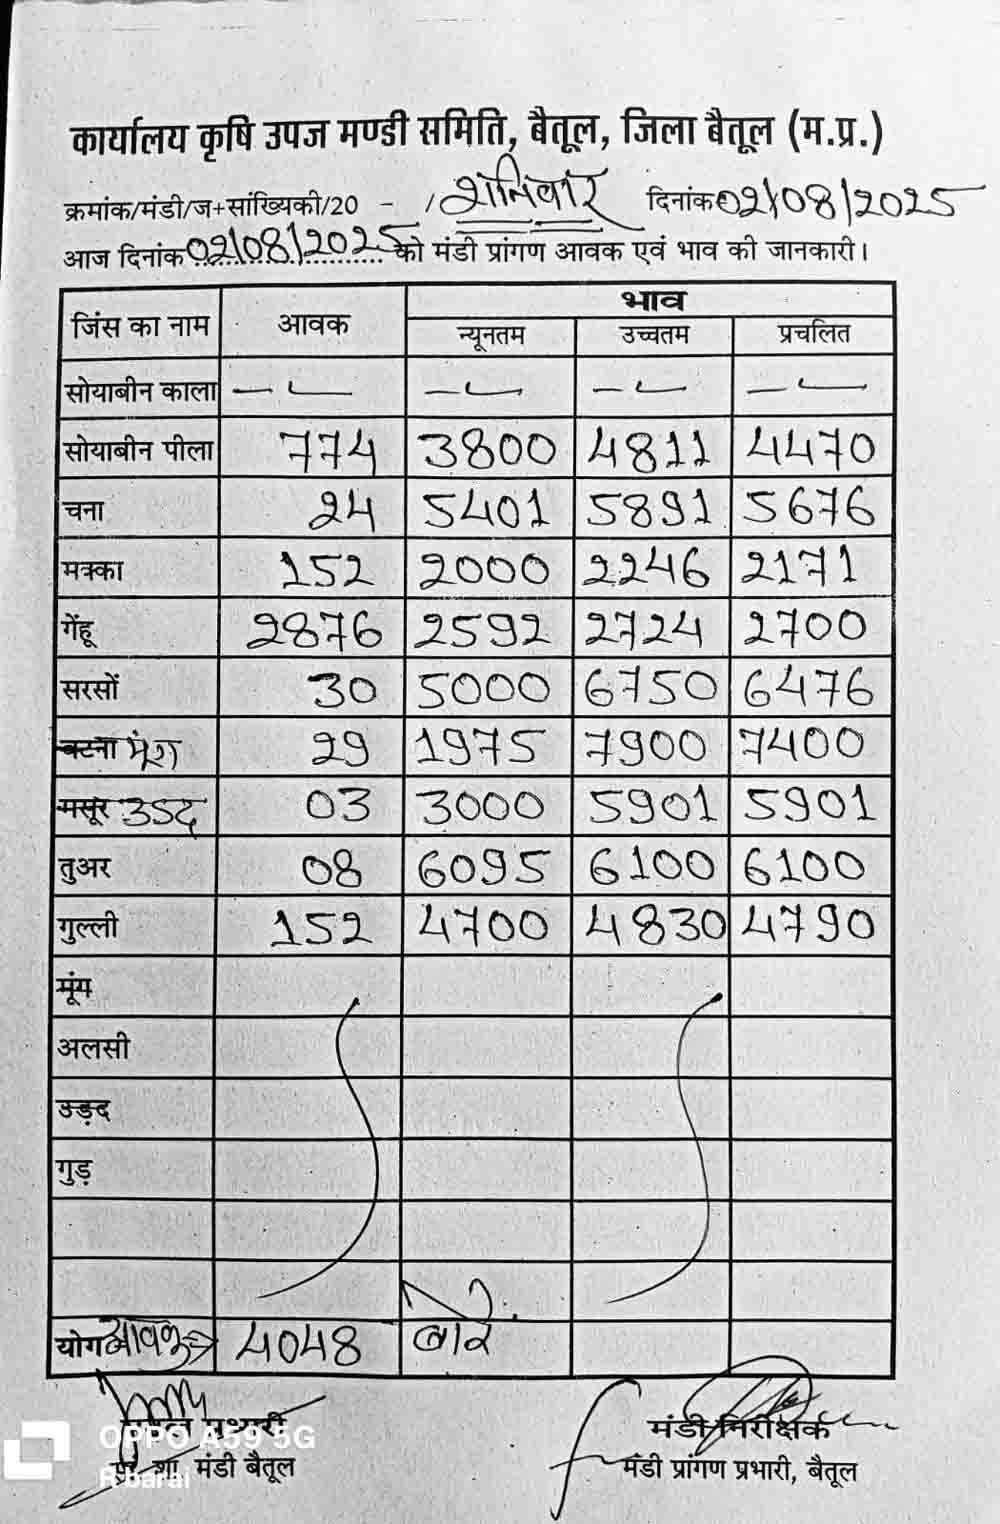 कार्यालय कृषि उपज मण्डी समिति, बैतूल, जिला बैतूल (म.प्र.)
क्रमांक/मंडी/ज+सांख्यिकी/20 - / शनिवार दिनांक 02/08/2025
आज दिनांक 02/08/2025 को मंडी प्रांगण आवक एवं भाव की जानकारी।
जिंस का नाम आवक भाव
न्यूनतम उच्चतम प्रचलित
सोयाबीन काला — — — —
सोयाबीन पीला 774 3800 4811 4470
चना 24 5401 5891 5676
मक्का 152 2000 2246 2171
गेंहू 2876 2592 2724 2700
सरसों 30 5000 6750 6476
बटना मूंग 29 1975 7900 7400
मसूर उडद 03 3000 5901 5901
तुअर 08 6095 6100 6100
गुल्ली 152 4700 4830 4790
मूंग
अलसी
उड़द
गुड़
योग आवक → 4048 बोरे
प्रभारी मंडी निरीक्षक
मंडी बैतूल मंडी प्रांगण प्रभारी, बैतूल
OPPO A59 5G
R barai